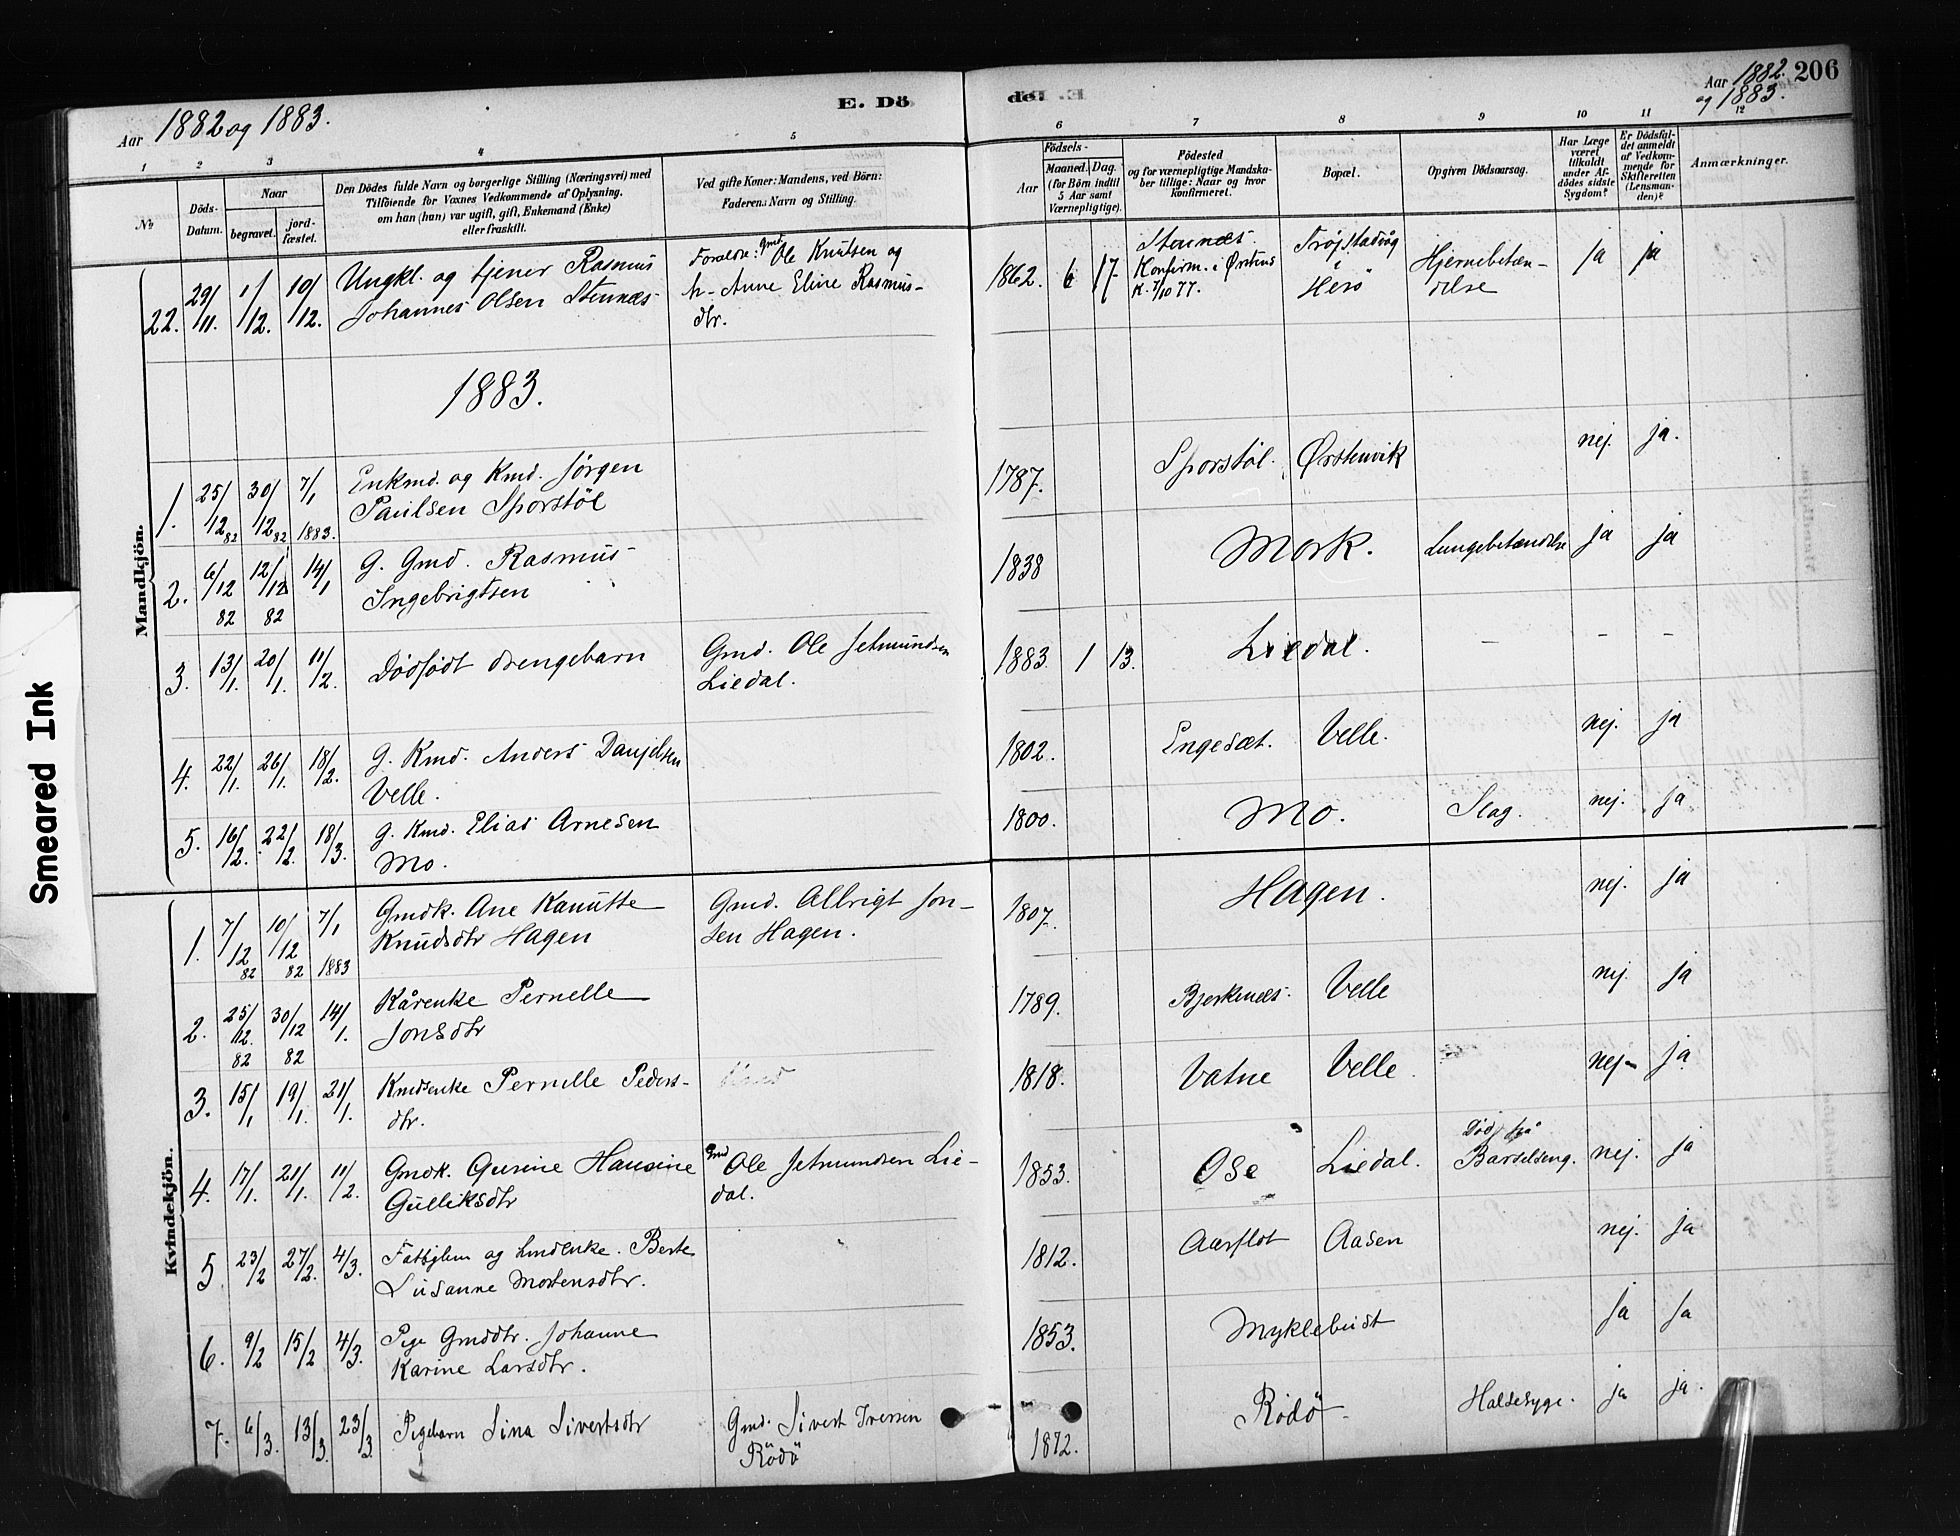 Aar 1882 og 1883.
E. Dö
de:
Aar 1882. og 1883.
206
1 2 3 4 5 6 7 8 9 10 11 12
No
Döds-Datum.
Naar
begravet.
jord-fæstet.
Den Dödes fulde Navn og borgerlige Stilling (Næringsvei) med
Tilföiende for Voxnes Vedkommende af Oplysning,
om han (hun) var ugift, gift, Enkemand (Enke)
eller fraskilt.
Ved gifte Koner: Mandens, ved Börn:
Faderens Navn og Stilling.
Födsels-
Aar
Maaned. Dag.
(for Börn indtil
5 Aar samt
Værnepligtige).
Födested
og for værnepligtige Mandska-
ber tillige: Naar og hvor
konfirmeret.
Bopæl.
Opgiven Dödsaarsag.
Har Læge
været
tilkaldt
under Af-
dödes sidste
Sygdom?
Er Dödsfal-
det anmeldt
af Vedkom-
mende for
Skifteretten
(Lensman-
den)?
Anmærkninger.
Mandkjön.
22. 29/11. 1/12. 10/12. Ungkl. og tjener Rasmus
Johannes Olsen Stennes
Forældre: Gmd Ole Knutsen og
h- Anne Eline Rasmus-
dtr.
1862. 6 17. Stennes.
Konfirm. i Ørstens
K. 7/10 77.
Trøjstadvåg
i
Herø
Hjernebetæn-
delse
ja ja
1883.
1. 25/12 82 30/12 82 7/1 1883. Enkmd. og Kmd. Jørgen
Paulsen Sporstöl
1787. Sporstöl. Ørstenvik nej. ja.
2. 6/12 82 12/12 82 14/1 G. Gmd. Rasmus
Ingebrigtsen
1838 Mork. Lungebetændelse ja ja
3. 13/1. 20/1. 11/2. Dödfödt drengebarn
Gmd. Ole Jetmundsen
Liedal.
1883. 1 13. Liedal. - - -
4. 22/1. 26/1. 18/2. G. Kmd. Anders Danjelsen
Velle.
1802. Engeset. Velle. nej. ja
5. 16/2. 22/2. 18/3. G. Kmd. Elias Arnesen
Mo.
1800. Mo. Slag. nej. ja
Kvindekjön.
1. 7/12 82 10/12 82 7/1 1883 Gmdk. Ane Kanutte
Knudsdtr Hagen
Gmd. Albrigt Jon-
sen Hagen.
1807. Hagen. nej. ja
2. 25/12. 82 30/12 82 14/1. Kårenke Pernelle
Jonsdtr
1789. Bjerknes. Velle nej. ja
3. 15/1 19/1. 21/1. Kmdsenke Pernelle Peders-
dtr.
Kmd
1818. Vatne Velle nej- ja
4. 17/1. 21/1. 11/2. Gmdk. Gurine Hansine
Gulliksdtr
Gmd Ole Jetmundsen Lie-
dal.
1853. Ose Liedal. Död på
Barselseng. nej. ja
5. 23/2 27/2. 4/3. Fattiglem og Kmdenke. Berte
Susanne Mortensdtr.
1812. Aarflot Aasen nej. ja
6. 9/2 15/2 4/3. Pige Gmddtr. Johanne
Karine Larsdtr.
1853. Myklebust ja ja
7. 6/3. 13/3. 23/3 Pigebarn Sina Sivertsdtr
Gmd. Sivert Iversen
Rödö
1872. Rödö Halsesyge. ja ja.
Smeared Ink